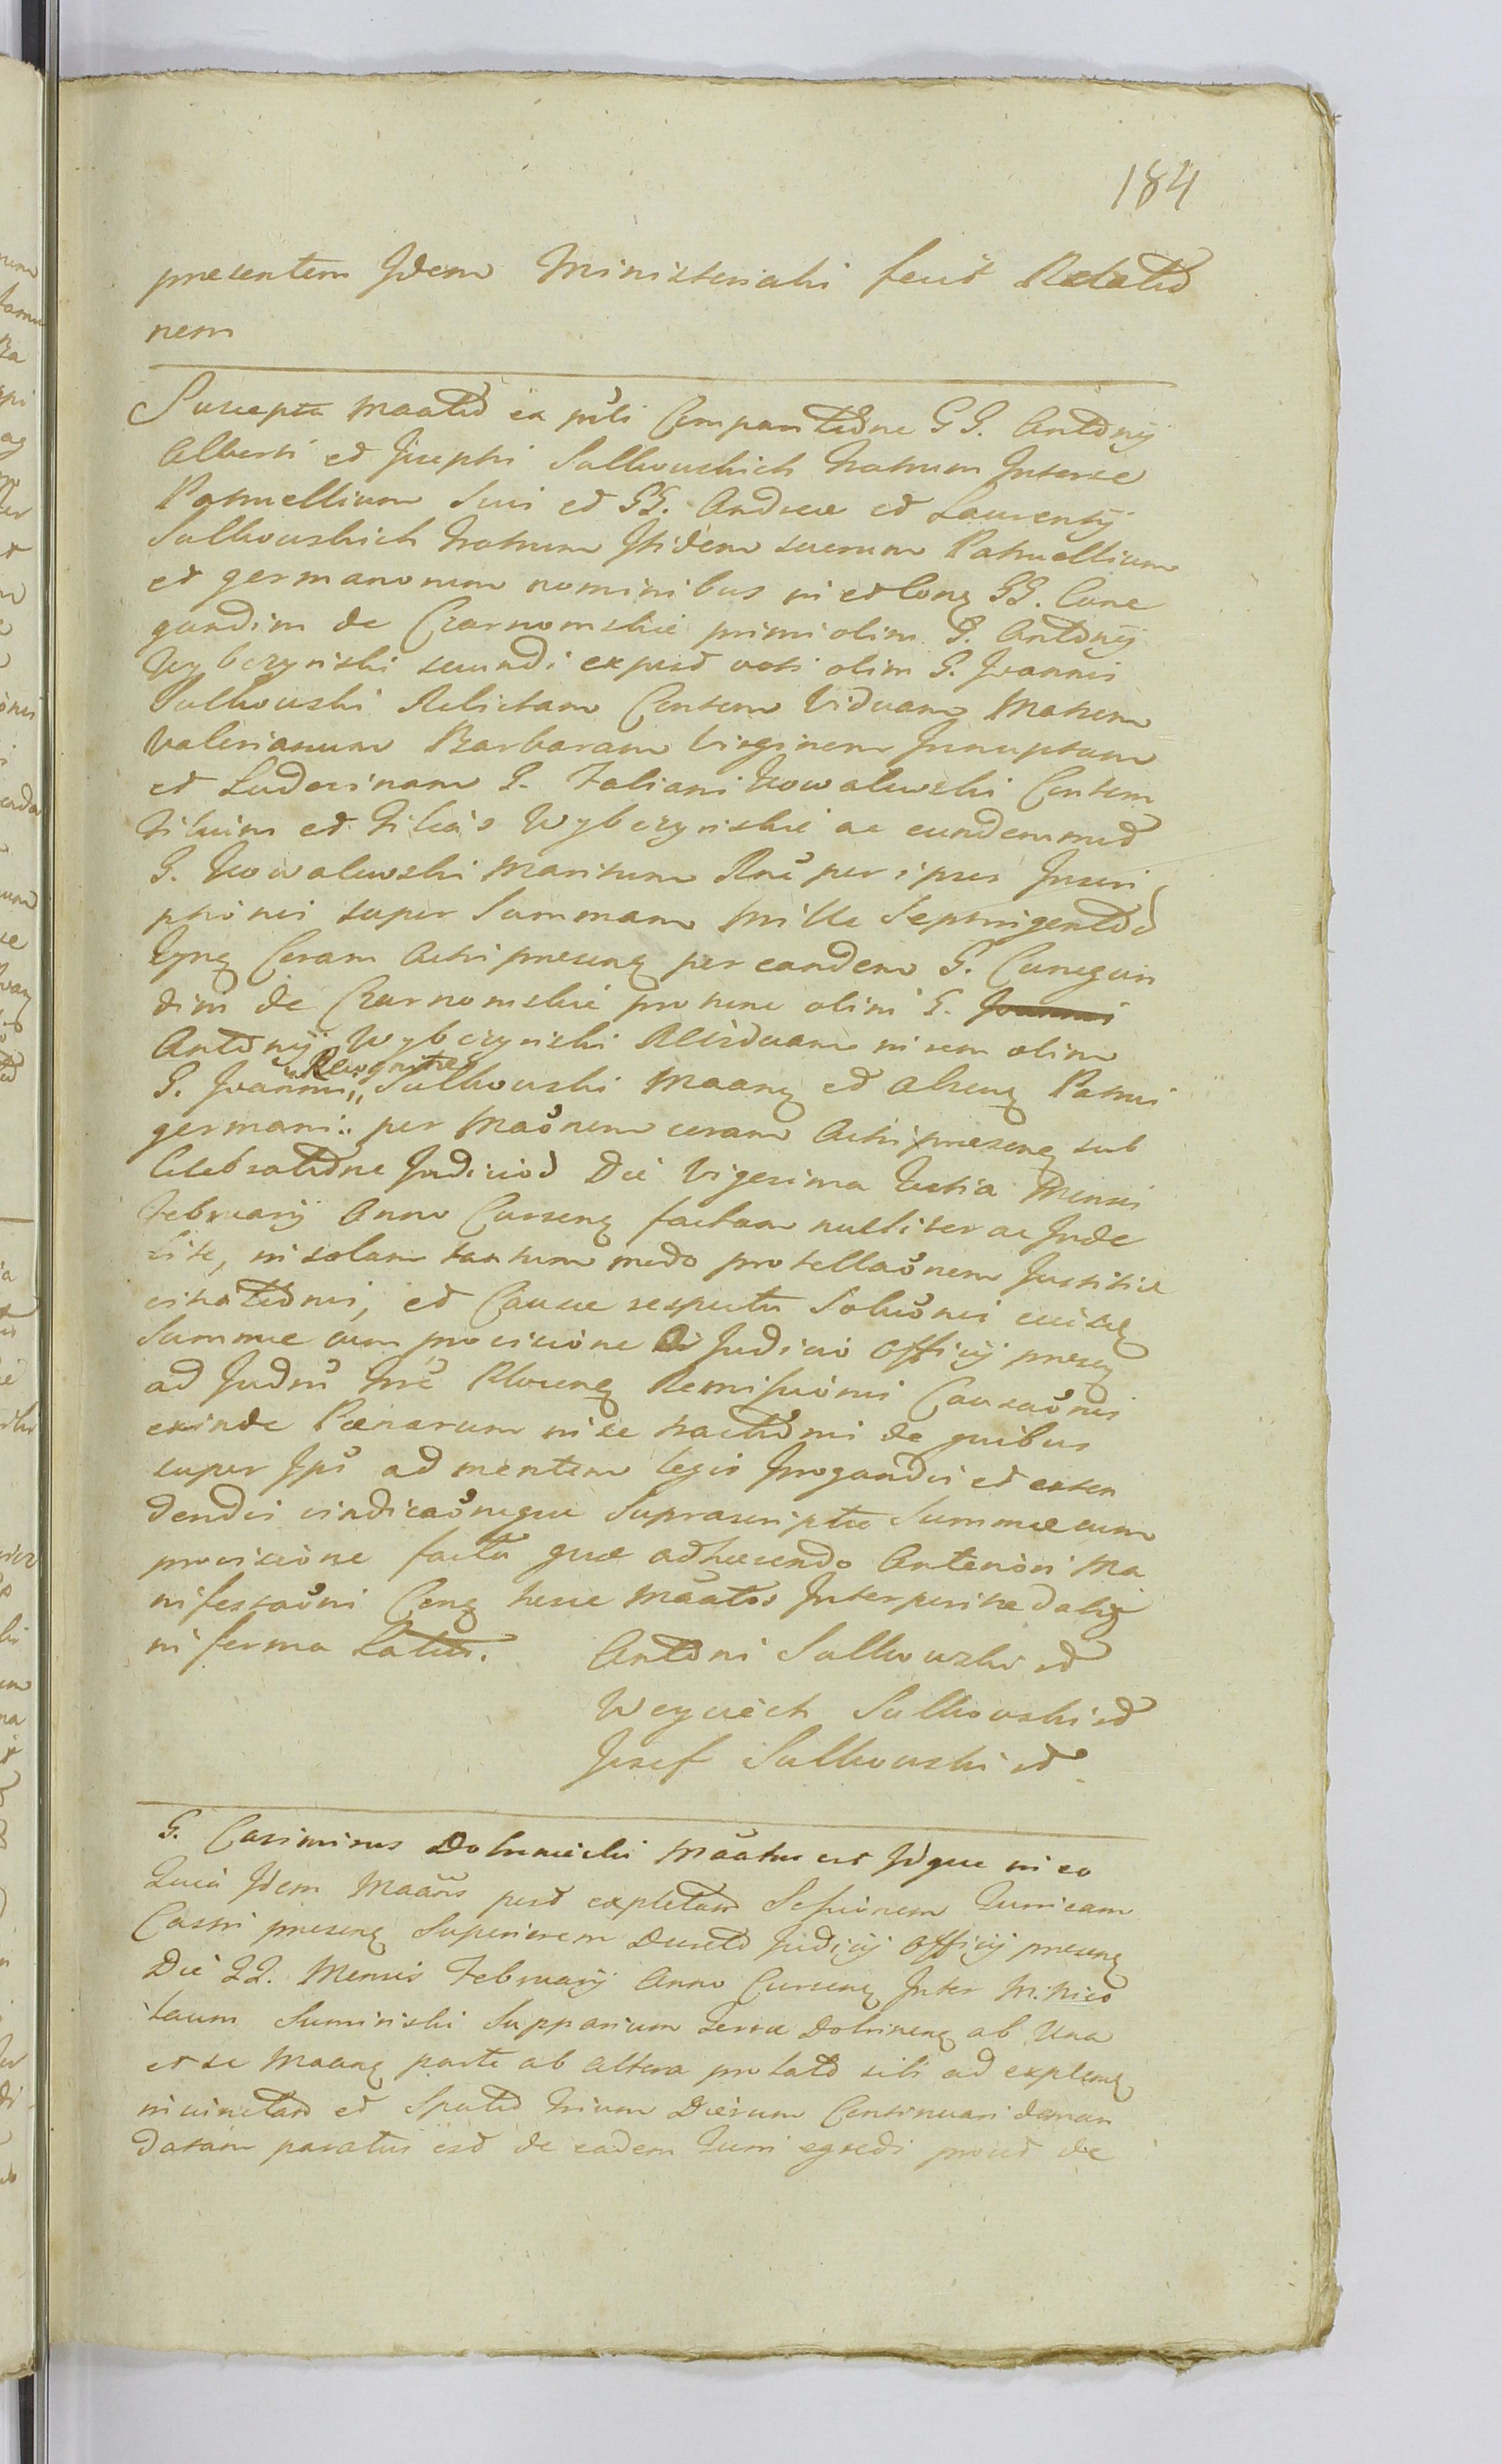 184
presentem Idem Ministerialis fecit Relatio
nem
Suscepta Maatio ex psti Comparitione GG. Antonij
Alberti et Josephi Sulkowskich Fratrum Interse
Patruelium Sui et GG. Andreae et Laurentij
Sulkowskich Fratrum Itidem suorum Patruelium
et germanorum nominibus in et Conq GG. Cune
gundim de Czarnomskie primi olim G. Antonij
Wybczynski secundi expost voti olim G. Joannis
Sulkowski Relictam Consem Viduam Matrem
Valerianum Barbaram Virginem Innuptam
et Ludovinam G. Foliani Kowalewski Consem
Filium et Filias Wybczynskie ac eundemmet
G. Kowalewski Maritum Rne per ipsos Inscri
ptionis super Summam Mille Septingentos
Tynq Coram Actis presenq per eandem G. Cunegun
dim de Czarnomskie pro tunc olim G. Joannis
Antonij Wybczynski Rlviduam in rem olim
G. Joannis " Recognitae Sulkowski Maanq et Alsenq Patrui
germani :. per Maonem coram Actis presenq sub
Celebratione Judicios Die Vigesima Tertia Mensis
Februarij Anno Cursenq factam nulliter ac Inde
bite, in solam tantum modo protellaonem Justitiae
citationis, et Causae respectu Soluonis
Summae cum provisione Judicio Officij presenq
ad Judm Tre Plocenq Remissionis Causaonis
exinde Paenarum in se tractionis de quibus
super Ips ad mentem legis Irrogandis et exten
dendis vindicaoneque Suprascriptae Summae cum
provisione facta quae adhaerendo Anteriori Ma
nifestaoni Conq huic Maatos Interposita
in forma Latius.
Antoni Sulkowski
Woyciech Sulkowski
Jozef Sulkowski
G. Casimirus Dobrniecki Maatus est Idque in eo
Quia Idem Maans post expletam Sessionem Turri eam
Castri presenq Superiorem Decreto Judicij Officij presenq
Die 22. Mensis Februarij Anno Cursenq Inter M. Nico
laum Suminski Supparium Terrae Dobrinenq ab Una
et se Maanq parte ab altera pro lato sibi ad explenq
iniunctam et Spatio trium Dierum Continuari deman
datam paratus est de eadem Turri egredi prout de